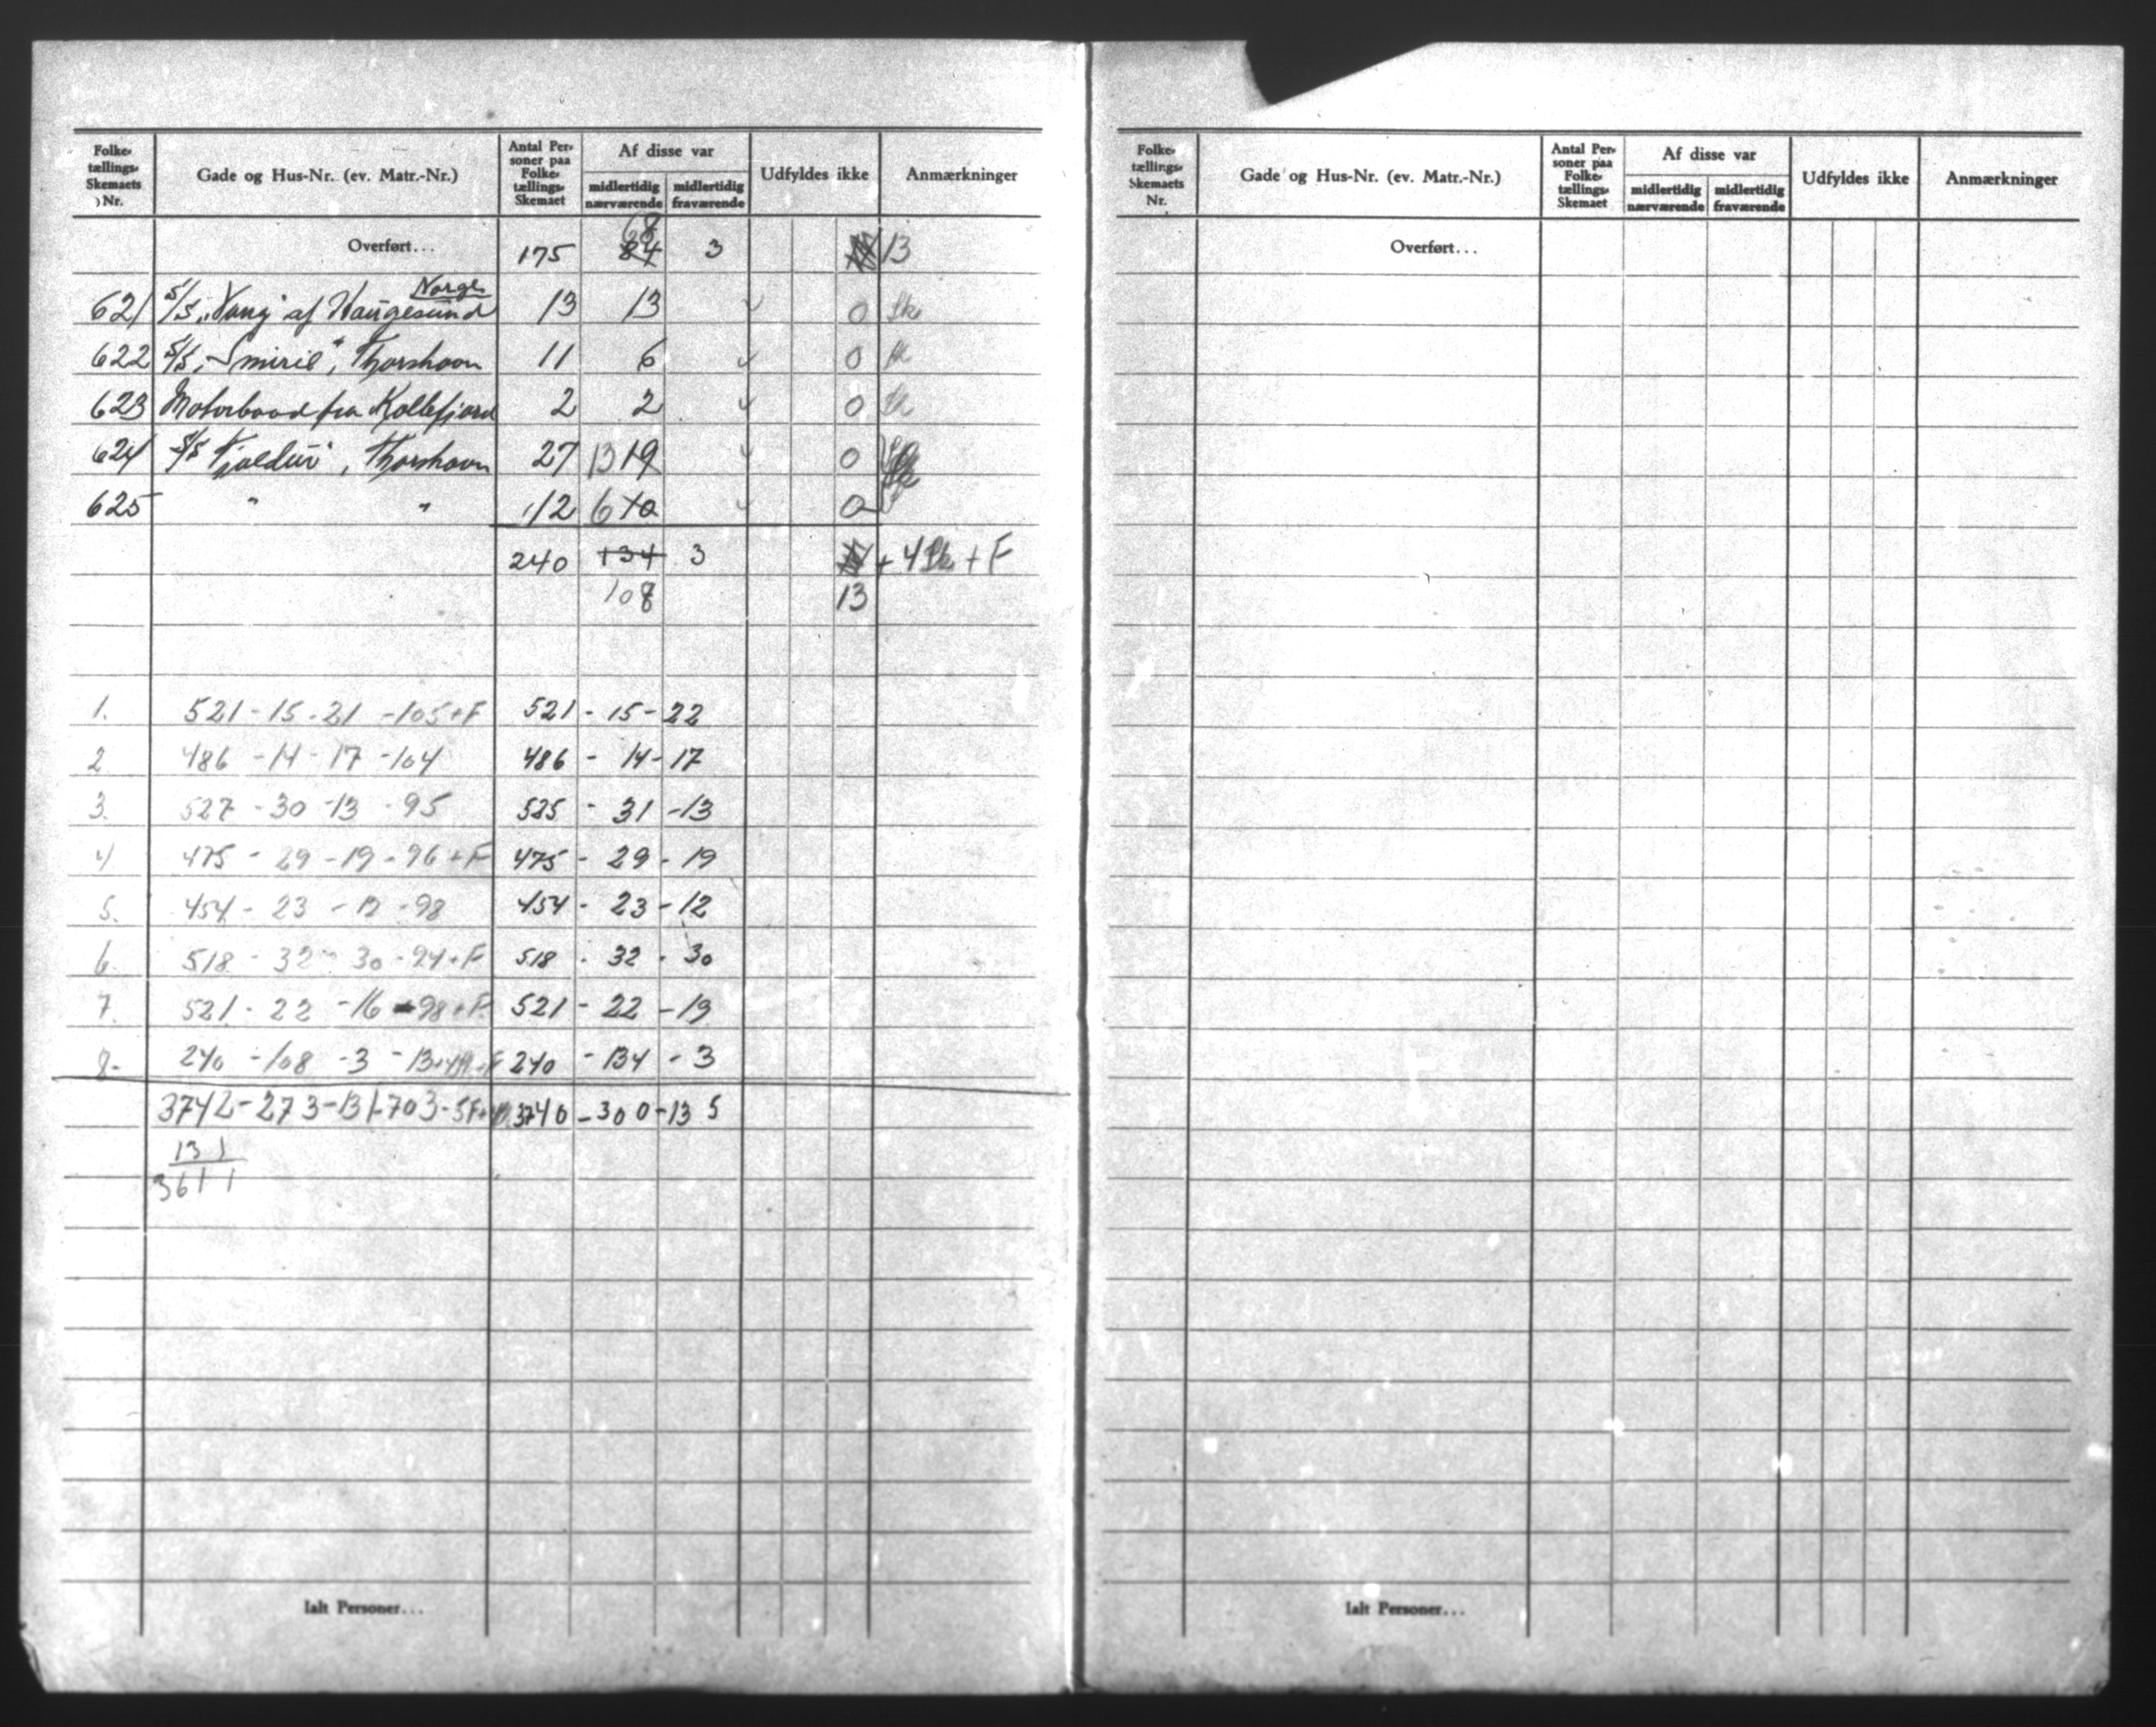 Folke-tællings-Skemaets Nr. Gade og Hus-Nr. (ev. Matr.-Nr.) Antal Personer paa Folke-tællings-Skemaet Af disse var midlertidig nærværende midlertidig fraværende Udfyldes ikke Anmærkninger
68
Overført... 175 84 3 13
Norge
621 S/S „Vang" af Haugesund 13 13 0 Sk
622 S/S „Smiril", Thorshavn 11 6 0 Sk
623 Motorbaad fra Kollefjord 2 2 0 Sk
624 S/S Tjaldur, Thorshavn 27 13 19 0
625 " " 12 6 10 0
240 134 3 + 4 Sk + F
108 13
1. 521 - 15 - 21 - 105 + F 521 - 15 - 22
2 486 - 14 - 17 - 104 486 - 14 - 17
3. 527 - 30 - 13 - 95 525 - 31 - 13
4) 475 - 29 - 19 - 96 + F 475 - 29 - 19
5. 454 - 23 - 12 - 98 454 - 23 - 12
6. 518 - 32 - 30 - 94 + F 518 - 32 - 30
7. 521 - 22 - 16 - 98 + F 521 - 22 - 19
8- 240 - 108 - 3 - 13 + 4 240 - 134 - 3
3742 - 273 - 131 - 703 - 5F + 3740 - 300 - 135
131
3611
Ialt Personer...
Folke-tællings-Skemaets Nr. Gade og Hus-Nr. (ev. Matr.-Nr.) Antal Personer paa Folke-tællings-Skemaet Af disse var midlertidig nærværende midlertidig fraværende Udfyldes ikke Anmærkninger
Overført...
Ialt Personer...